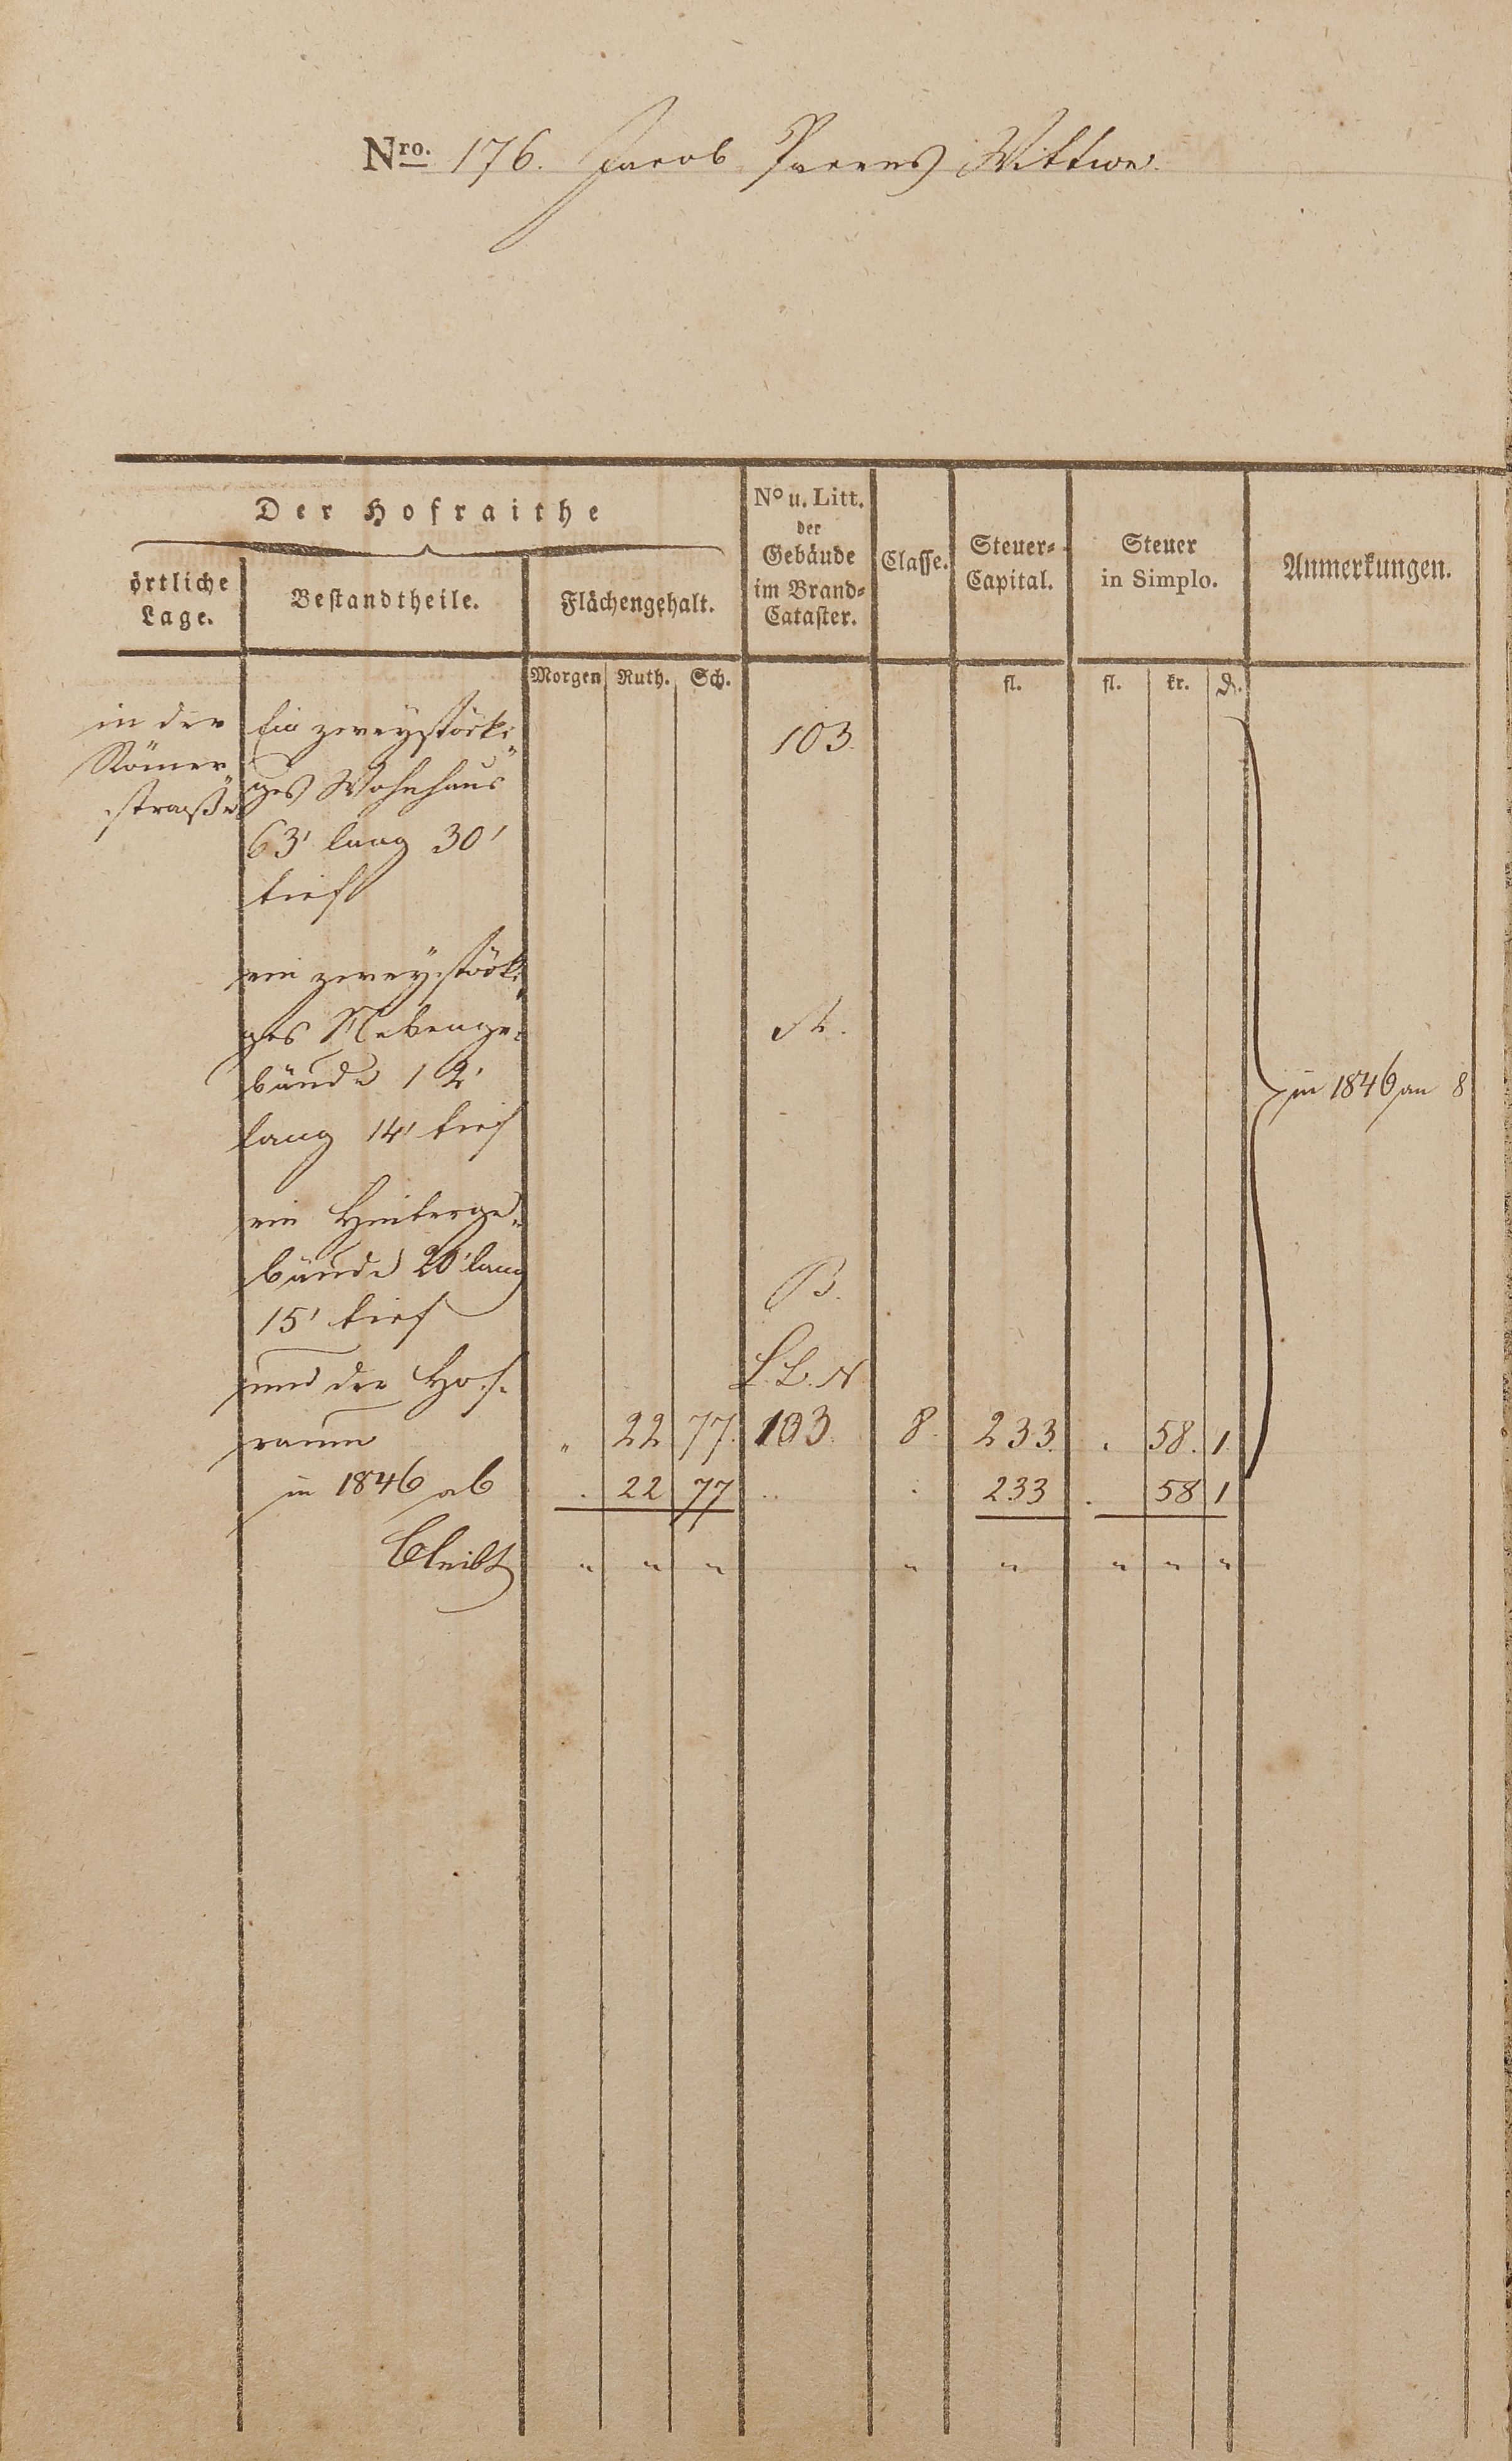 Nro. 176. Jacob Wittwe.
Der Hofraithe
örtliche Lage.
Bestandtheile.
Flächengehalt.
No u. Litt. der Gebäude im Brand-Cataster.
Classe.
Steuer-Capital.
Steuer in Simplo.
Anmerkungen.
Morgen Ruth. Sch. fl. fl. kr. d.
in der
Römer
straße
Ein zweystöcki 103.
ges Wohnhaus
63' lang 30'
tief
ein zweystöcki
ges Nebenge- A.
bäude 12'
lang 14' tief
in 1846 an 8
ein Hinterge-
bäude 20' lang B.
15' tief
und der Hof- L. B. N
raum " 22 77. 103. 8. 233. . 58. 1.
in 1846 ab . 22 77 .. . 233 . 58 1
bleibt " " " " " " " "